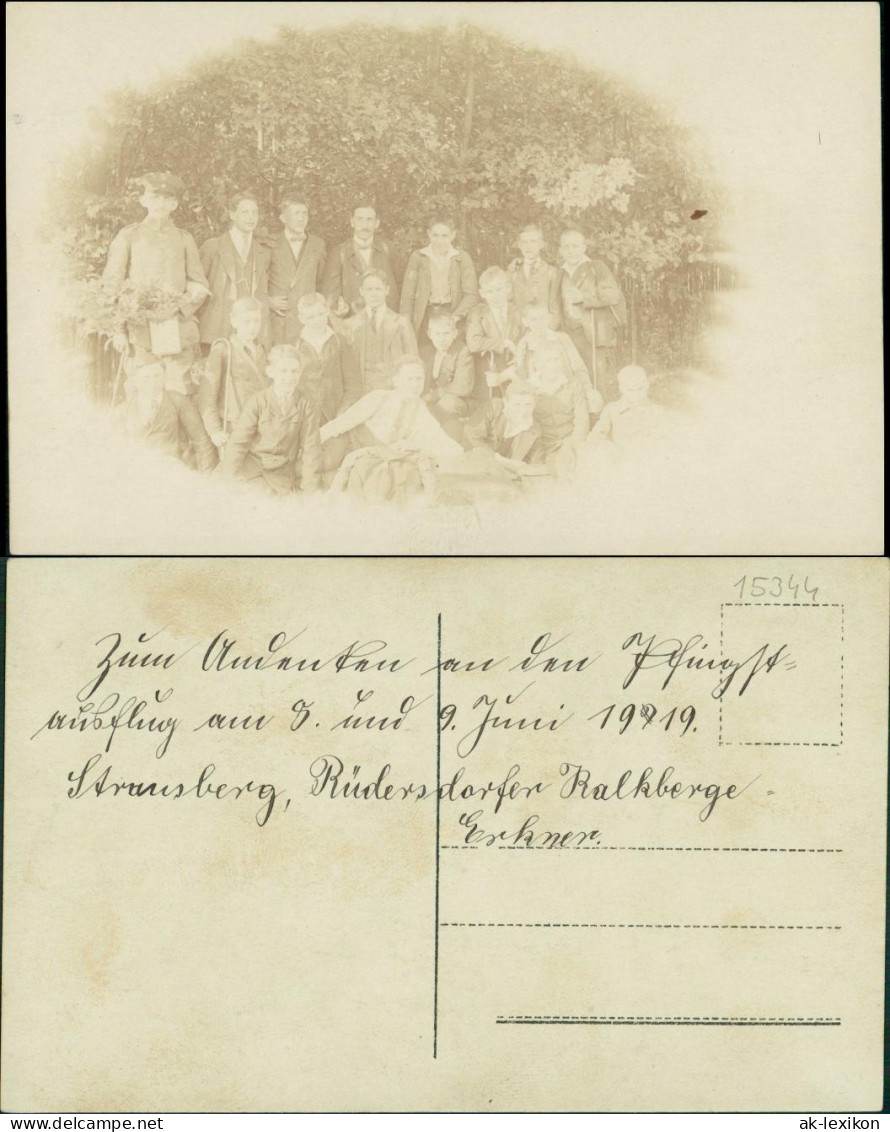 15344
Zum Andenken an den Pfingst=
ausflug am 8. und 9. Juni 1919.
Strausberg, Rüdersdorfer Kalkberge -
Erkner.
www.delcampe.net
ak-lexikon